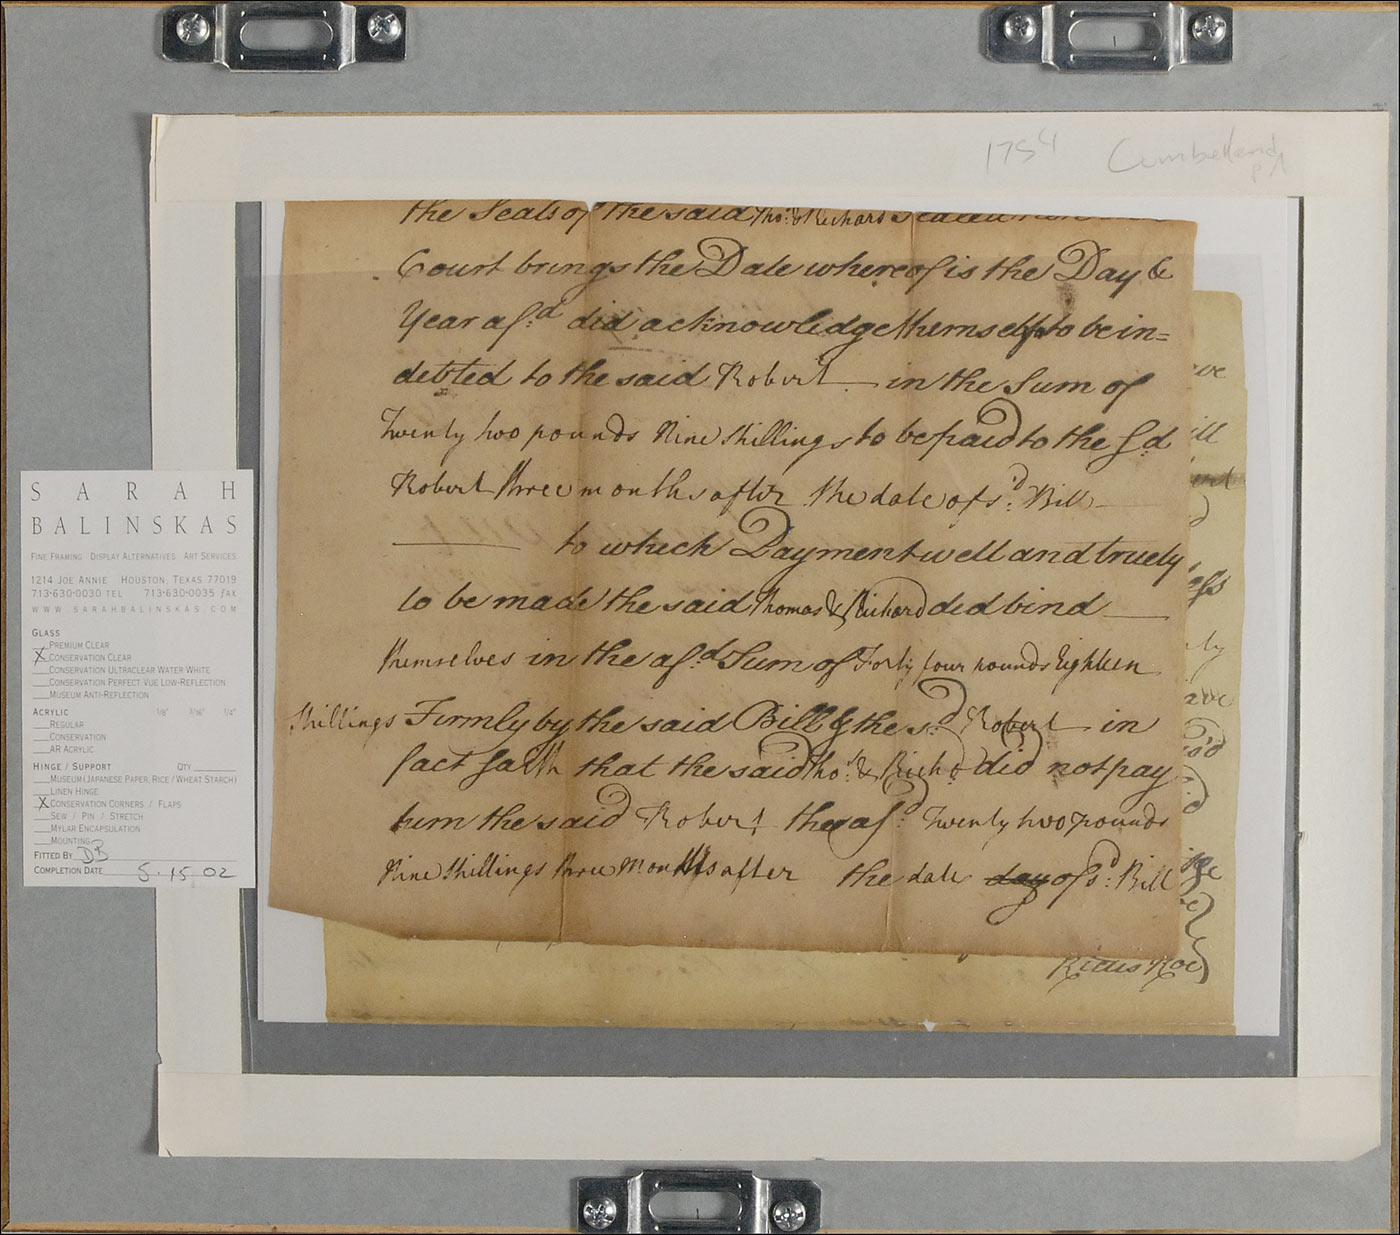 1754 Cumberland PA
the Seals of the said Tho.s & Richard Sealed
Court brings the Date whereof is the Day &
Year afd. did acknowledge themselfs to be in=
debted to the said Robert in the Sum of
Twenty two pounds Nine shillings to be paid to the sd.
Robert three months after the date of sd. Bill
to which Payment well and truely
to be made the said Thomas & Richard did bind
themselves in the afd. Sum of Forty four pounds Eighteen
shillings Firmly by the said Bill & the sd. Robert in
fact saith that the said Tho.s & Richd. did not pay
him the said Robert the afd. Twenty two pounds
Nine shillings three Months after the date day of sd. Bill
Richd Roe
SARAH
BALINSKAS
FINE FRAMING DISPLAY ALTERNATIVES ART SERVICES
1214 JOE ANNIE HOUSTON, TEXAS 77019
713·630·0030 TEL 713·630·0035 FAX
WWW.SARAHBALINSKAS.COM
GLASS
PREMIUM CLEAR
X CONSERVATION CLEAR
CONSERVATION ULTRACLEAR WATER WHITE
CONSERVATION PERFECT VUE LOW-REFLECTION
MUSEUM ANTI-REFLECTION
ACRYLIC 1/8" 3/16" 1/4"
REGULAR
CONSERVATION
AR ACRYLIC
HINGE / SUPPORT QTY
MUSEUM (JAPANESE PAPER, RICE / WHEAT STARCH)
LINEN HINGE
X CONSERVATION CORNERS / FLAPS
SEW / PIN / STRETCH
MYLAR ENCAPSULATION
MOUNTING
FITTED BY DB
COMPLETION DATE 5.15.02